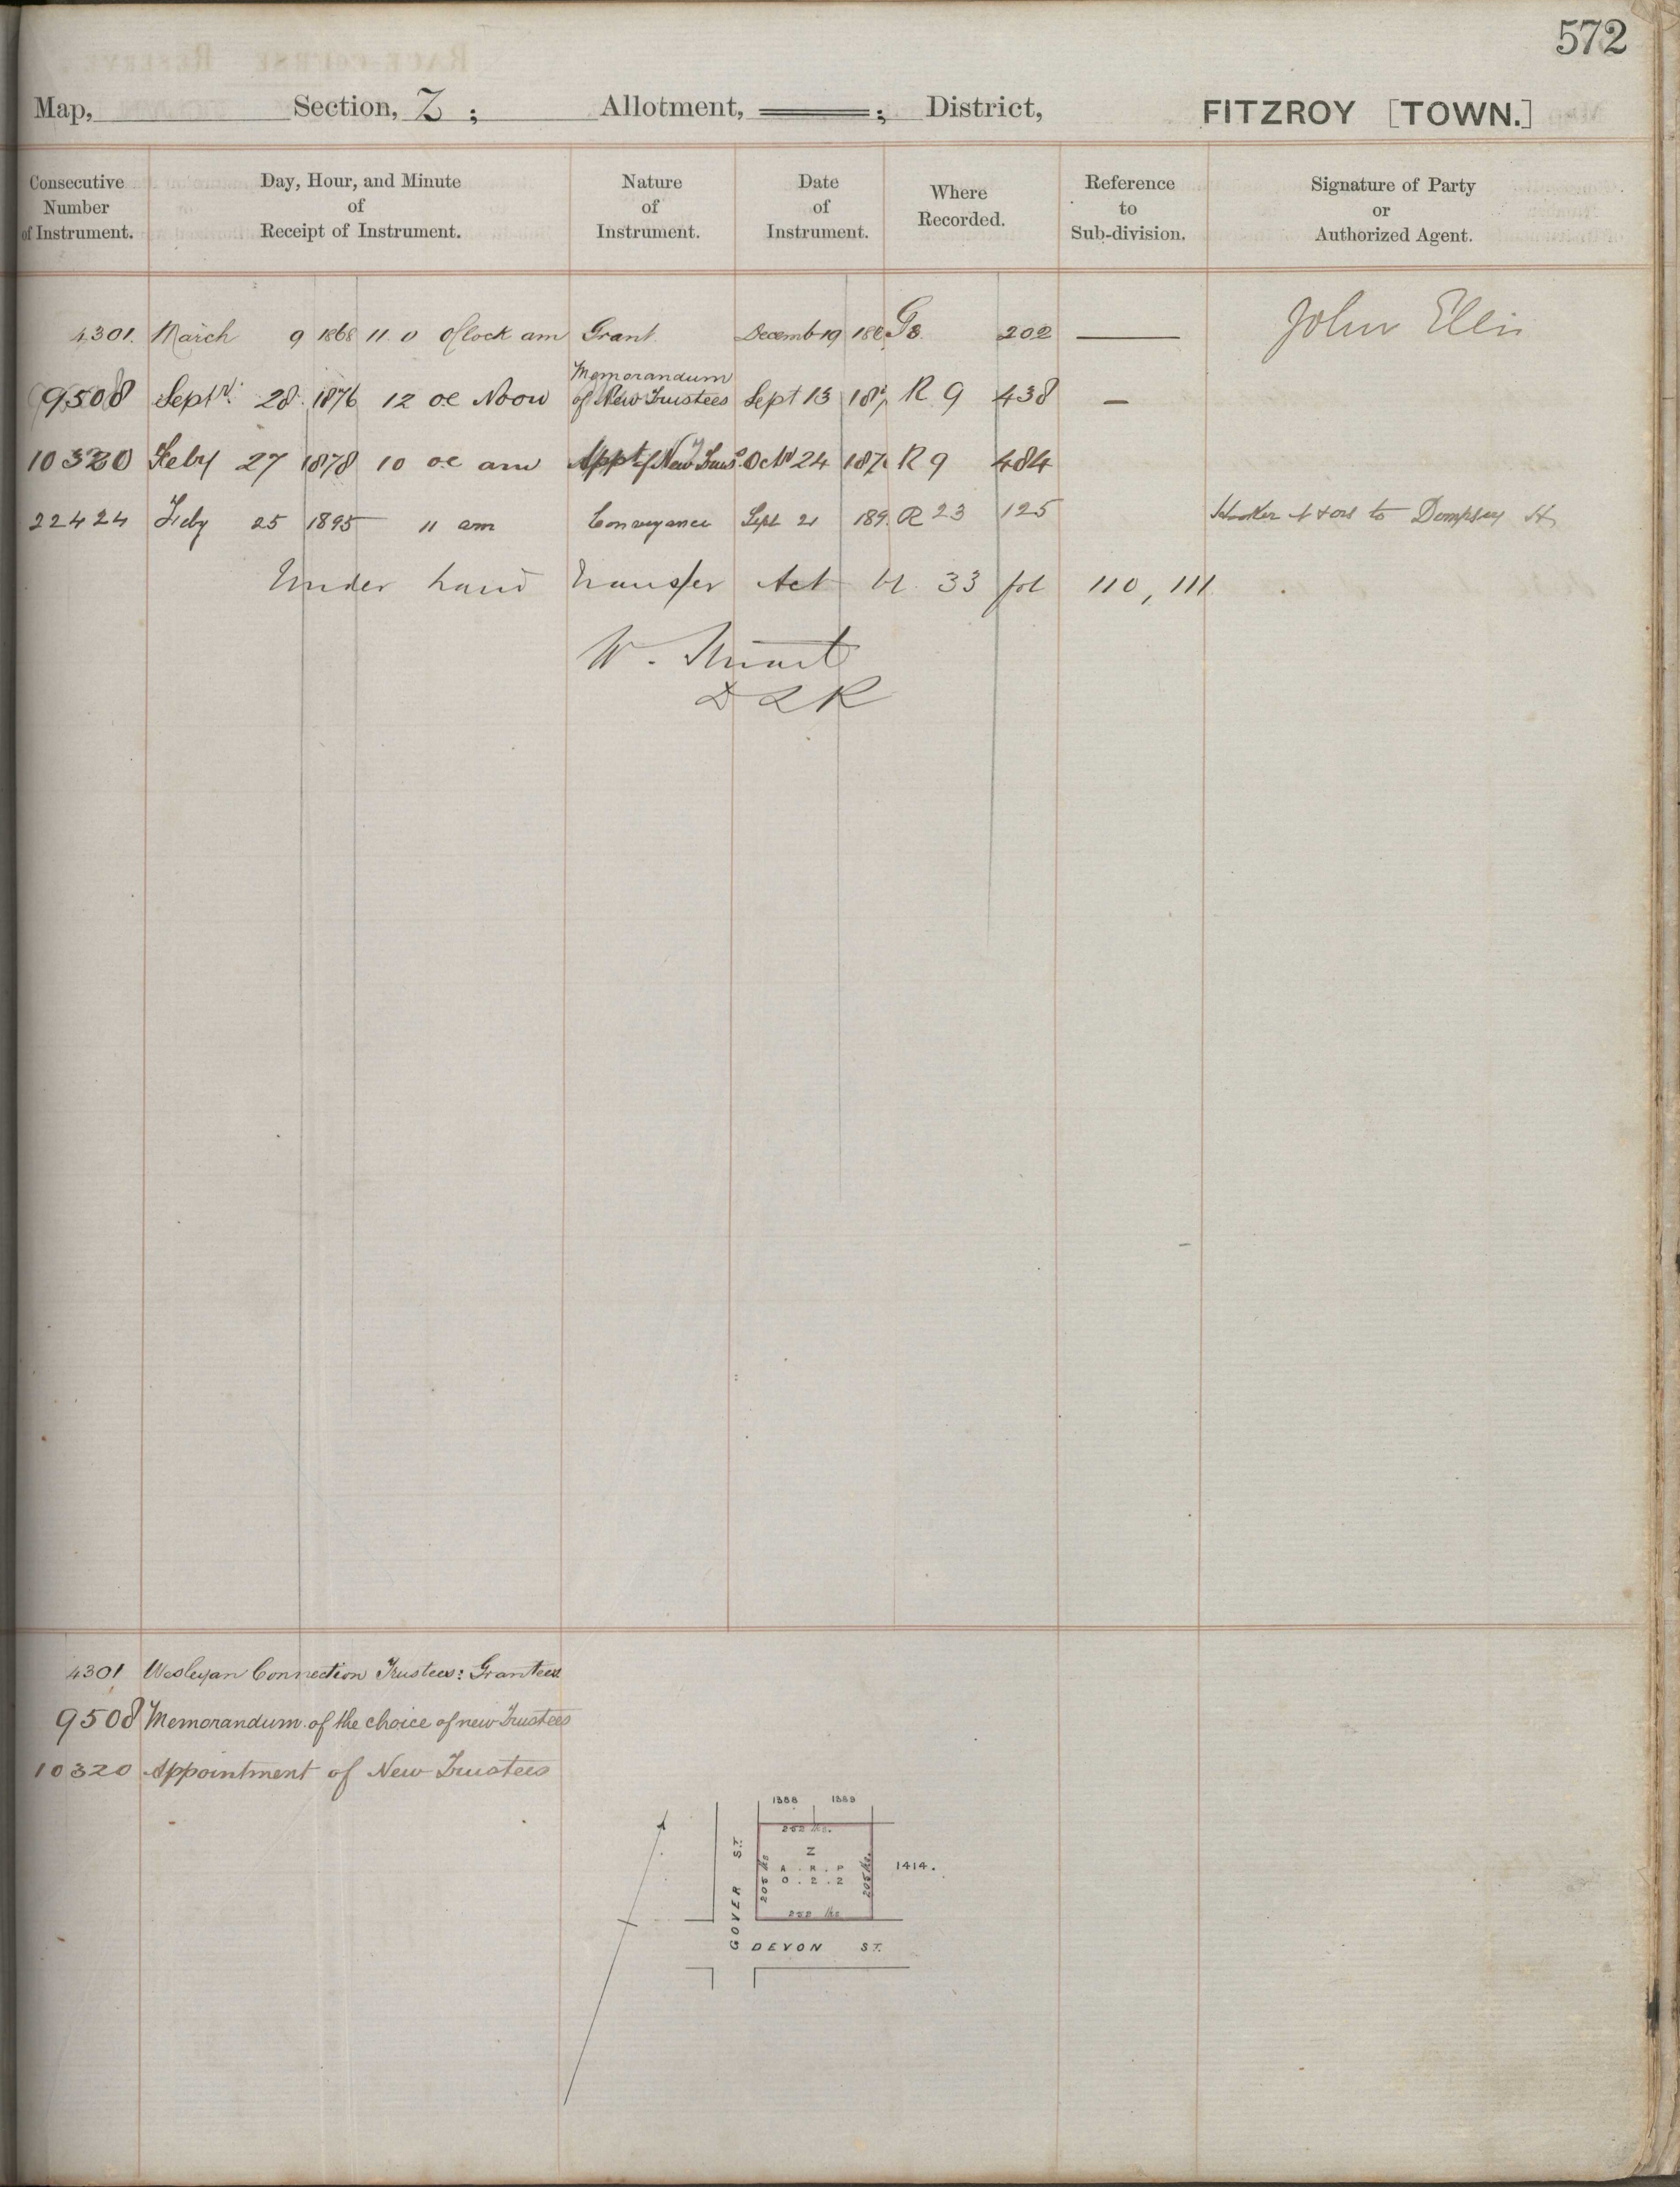 572
Map, Section, Z ; Allotment, ; District, FITZROY [TOWN.]
Consecutive Number of Instrument.
Day, Hour, and Minute of Receipt of Instrument.
Nature of Instrument.
Date of Instrument.
Where Recorded.
Reference to Sub-division.
Signature of Party or Authorized Agent.
4301. March 9 1868 11. 0 O'Clock am Grant. Decemb 19 G 8. 202 — John Ellis
9508 Septr. 28. 1876 12 oc Noon Memorandum of New Trustees Sept 13 R 9 438 —
10320 Feby 27 1878 10 oc am Appt of New Trus. Octr 24 R 9 484
22424 Feby 25 1895 11 am Conveyance Sept 21 R 23 125 Hooker & ors to Dempsey
Under Land Transfer Act Vl. 33 fol 110, 111
W. Stuart
D L R
4301 Wesleyan Connection Trustees: Grantees
9508 Memorandum of the choice of new Trustees
10320 Appointment of New Trustees
1388 1389
252 lks.
Z
A . R . P
0 . 2 . 2
205 lks
205 lks.
1414.
252 lks
GOVER ST.
DEVON ST.